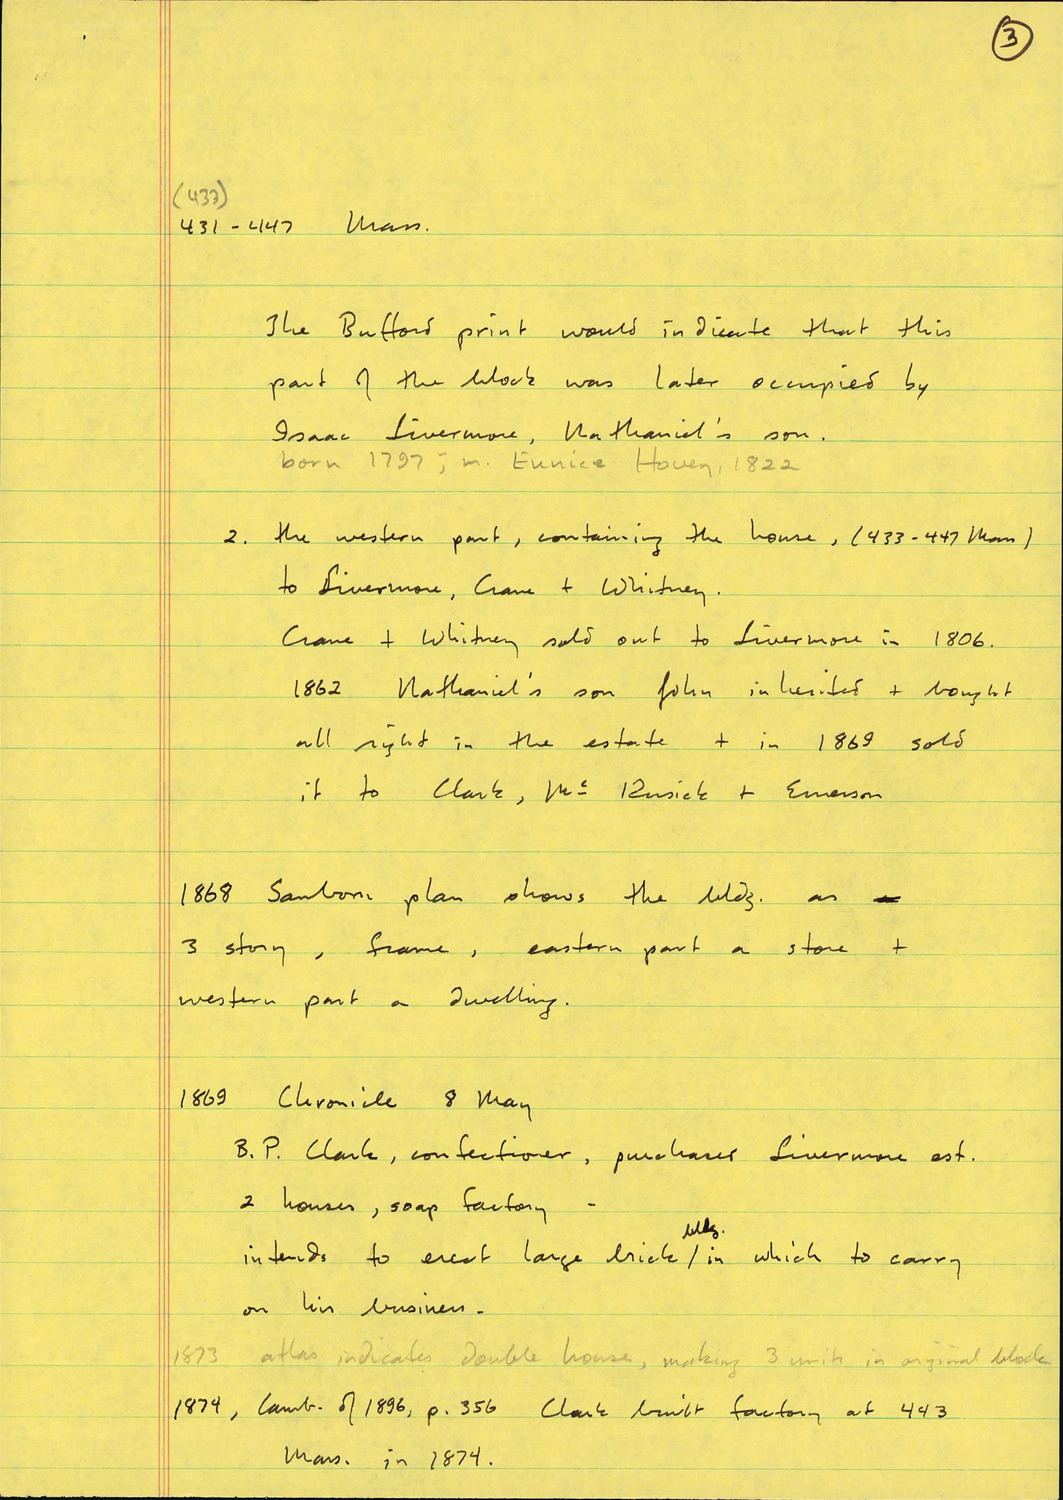 3
(433)
431-447 Mass.
The Bufford print would indicate that this
part of the block was later occupied by
Isaac Livermore, Nathaniel's son.
born 1797; m. Eunice Hovey, 1822
2. the western part, containing the house, (433-447 Mass)
to Livermore, Crane + Whitney.
Crane + Whitney sold out to Livermore in 1806.
1862 Nathaniel's son John inherited + bought
all right in the estate + in 1869 sold
it to Clark, Mc Kusick + Emerson
1868 Sanborn plan shows the bldg. as
3 story, frame, eastern part a store +
western part a dwelling.
1869 Chronicle 8 May
B.P. Clark, confectioner, purchases Livermore est.
2 houses, soap factory -
bldg.
intends to erect large brick / in which to carry
on his business -
1873 atlas indicates double house, making 3 units in original block
1874, Camb. of 1896, p. 356 Clark built factory at 443
Mass. in 1874.